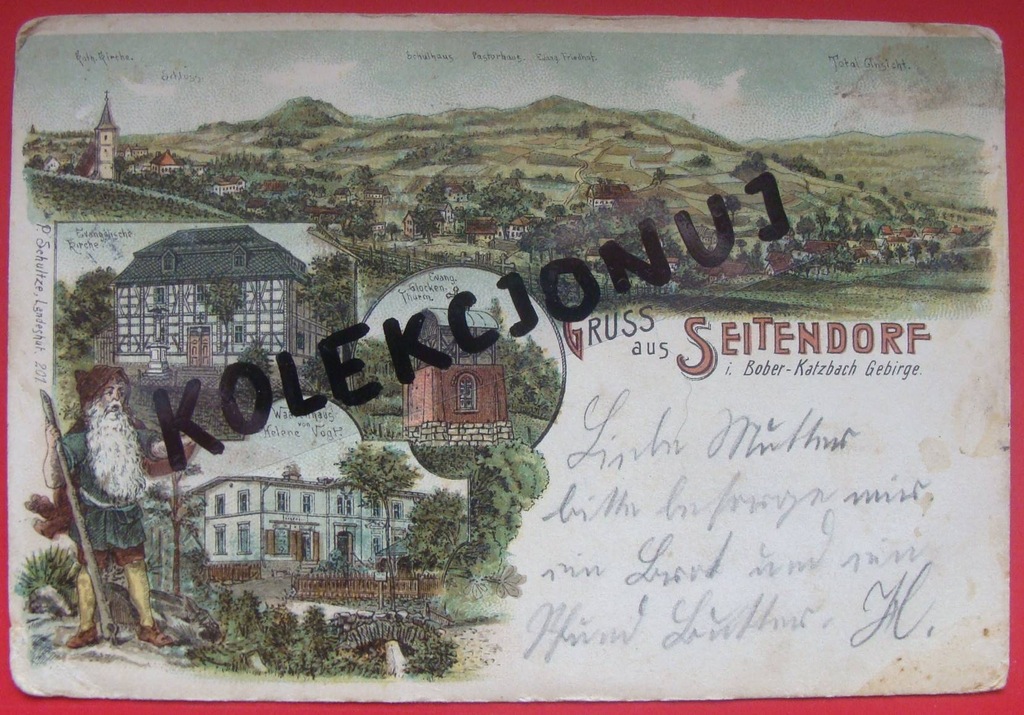 Kath. Kirche.
Schloss.
Schulhaus Pastorhaus Evang. Friedhof.
Total Ansicht.
KOLEKCJONUJ
Evangelische
Kirche
Evang.
Glocken
Thurm
GRUSS
aus SEITENDORF
i. Bober-Katzbach Gebirge.
von
Helene Vogt.
P. Schultze, Landeshut. 201
Liebe Mutter
bitte besorge mir
ein Brot und ein
Pfund Butter. H.